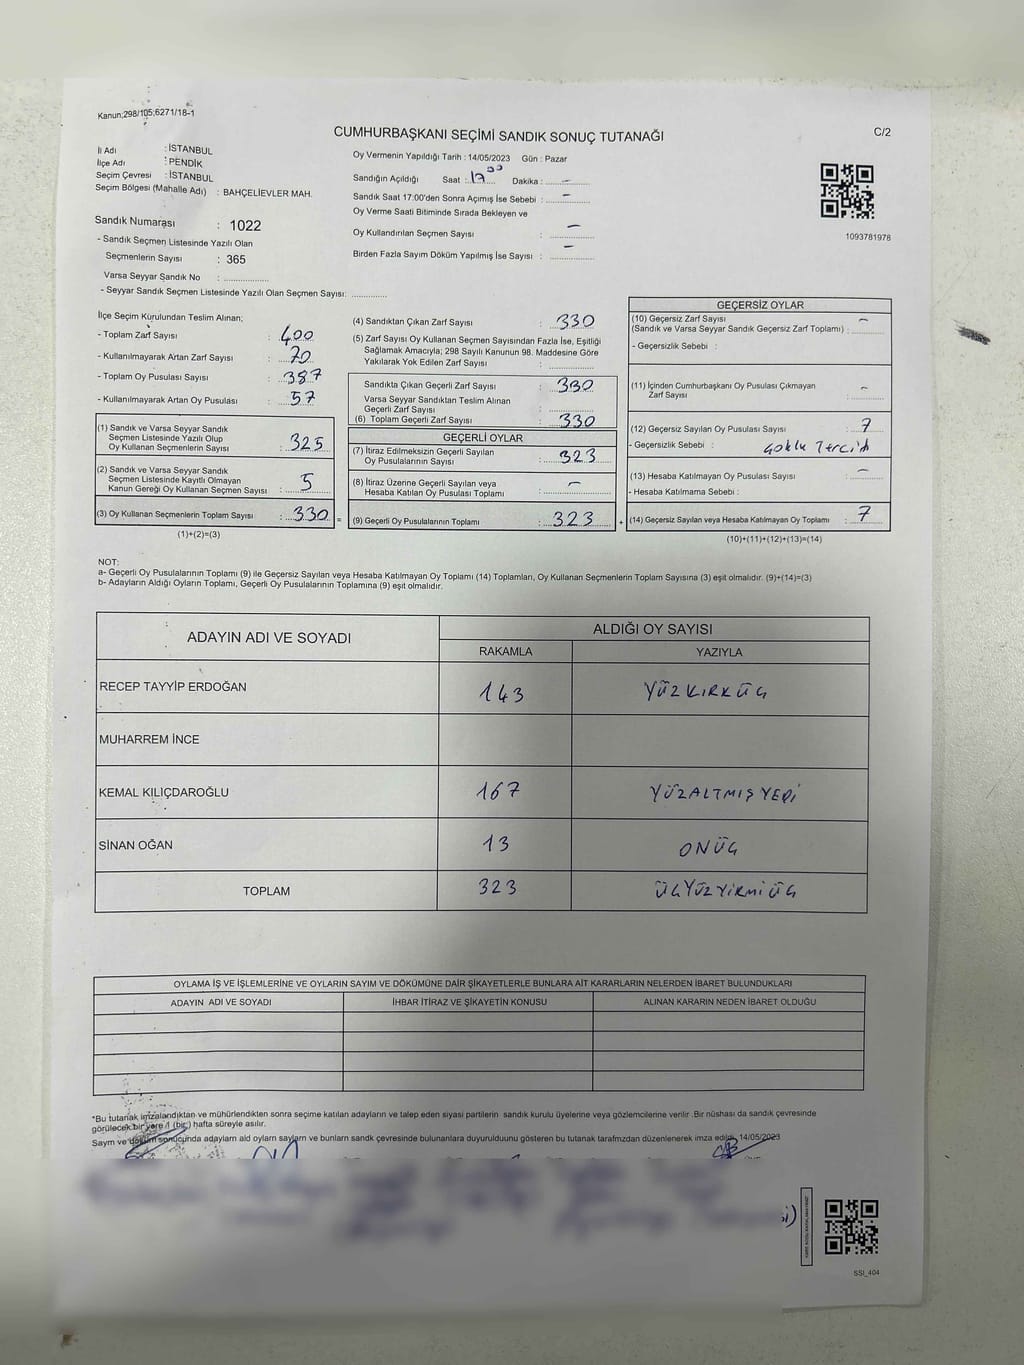 Kanun;298/105;6271/18-1
CUMHURBAŞKANI SEÇİMİ SANDIK SONUÇ TUTANAĞI
C/2
İl Adı : İSTANBUL
İlçe Adı : PENDİK
Seçim Çevresi : İSTANBUL
Seçim Bölgesi (Mahalle Adı) : BAHÇELİEVLER MAH.
Sandık Numarası : 1022
- Sandık Seçmen Listesinde Yazılı Olan
Seçmenlerin Sayısı : 365
Varsa Seyyar Sandık No :
- Seyyar Sandık Seçmen Listesinde Yazılı Olan Seçmen Sayısı:
Oy Vermenin Yapıldığı Tarih : 14/05/2023 Gün : Pazar
Sandığın Açıldığı Saat : 17⁰⁰ Dakika : –
Sandık Saat 17:00'den Sonra Açımış İse Sebebi : –
Oy Verme Saati Bitiminde Sırada Bekleyen ve
Oy Kullandırılan Seçmen Sayısı : –
Birden Fazla Sayım Döküm Yapılmış İse Sayısı : –
1093781978
İlçe Seçim Kurulundan Teslim Alınan;
- Toplam Zarf Sayısı : 400
- Kullanılmayarak Artan Zarf Sayısı : 70
- Toplam Oy Pusulası Sayısı : 387
- Kullanılmayarak Artan Oy Pusulası : 57
(1) Sandık ve Varsa Seyyar Sandık
Seçmen Listesinde Yazılı Olup
Oy Kullanan Seçmenlerin Sayısı : 325
(2) Sandık ve Varsa Seyyar Sandık
Seçmen Listesinde Kayıtlı Olmayan
Kanun Gereği Oy Kullanan Seçmen Sayısı : 5
(3) Oy Kullanan Seçmenlerin Toplam Sayısı : 330 =
(1)+(2)=(3)
(4) Sandıktan Çıkan Zarf Sayısı : 330
(5) Zarf Sayısı Oy Kullanan Seçmen Sayısından Fazla İse, Eşitliği
Sağlamak Amacıyla; 298 Sayılı Kanunun 98. Maddesine Göre
Yakılarak Yok Edilen Zarf Sayısı :
Sandıkta Çıkan Geçerli Zarf Sayısı : 330
Varsa Seyyar Sandıktan Teslim Alınan
Geçerli Zarf Sayısı :
(6) Toplam Geçerli Zarf Sayısı : 330
GEÇERLİ OYLAR
(7) İtiraz Edilmeksizin Geçerli Sayılan
Oy Pusulalarının Sayısı : 323
(8) İtiraz Üzerine Geçerli Sayılan veya
Hesaba Katılan Oy Pusulası Toplamı : –
(9) Geçerli Oy Pusulalarının Toplamı : 323 +
GEÇERSİZ OYLAR
(10) Geçersiz Zarf Sayısı –
(Sandık ve Varsa Seyyar Sandık Geçersiz Zarf Toplamı) :
- Geçersizlik Sebebi :
(11) İçinden Cumhurbaşkanı Oy Pusulası Çıkmayan –
Zarf Sayısı :
(12) Geçersiz Sayılan Oy Pusulası Sayısı : 7
- Geçersizlik Sebebi : Çoklu Tercih
(13) Hesaba Katılmayan Oy Pusulası Sayısı : –
- Hesaba Katılmama Sebebi :
(14) Geçersiz Sayılan veya Hesaba Katılmayan Oy Toplamı : 7
(10)+(11)+(12)+(13)=(14)
NOT:
a- Geçerli Oy Pusulalarının Toplamı (9) ile Geçersiz Sayılan veya Hesaba Katılmayan Oy Toplamı (14) Toplamları, Oy Kullanan Seçmenlerin Toplam Sayısına (3) eşit olmalıdır. (9)+(14)=(3)
b- Adayların Aldığı Oyların Toplamı, Geçerli Oy Pusulalarının Toplamına (9) eşit olmalıdır.
ADAYIN ADI VE SOYADI
ALDIĞI OY SAYISI
RAKAMLA YAZIYLA
RECEP TAYYİP ERDOĞAN 143 YÜZKIRKÜÇ
MUHARREM İNCE
KEMAL KILIÇDAROĞLU 167 YÜZALTMIŞYEDİ
SİNAN OĞAN 13 ONÜÇ
TOPLAM 323 ÜÇYÜZYİRMİÜÇ
OYLAMA İŞ VE İŞLEMLERİNE VE OYLARIN SAYIM VE DÖKÜMÜNE DAİR ŞİKAYETLERLE BUNLARA AİT KARARLARIN NELERDEN İBARET BULUNDUKLARI
ADAYIN ADI VE SOYADI İHBAR İTİRAZ VE ŞİKAYETİN KONUSU ALINAN KARARIN NEDEN İBARET OLDUĞU
*Bu tutanak imzalandıktan ve mühürlendikten sonra seçime katılan adayların ve talep eden siyasi partilerin sandık kurulu üyelerine veya gözlemcilerine verilir .Bir nüshası da sandık çevresinde
görülecek bir yere 1 (bir) hafta süreyle asılır.
Sayım ve döküm sonucunda adaylarn ald oylarn saylarn ve bunlarn sandk çevresinde bulunanlara duyurulduunu gösteren bu tutanak tarafmzdan düzenlenerek imza edildi. 14/05/2023
SSI_404